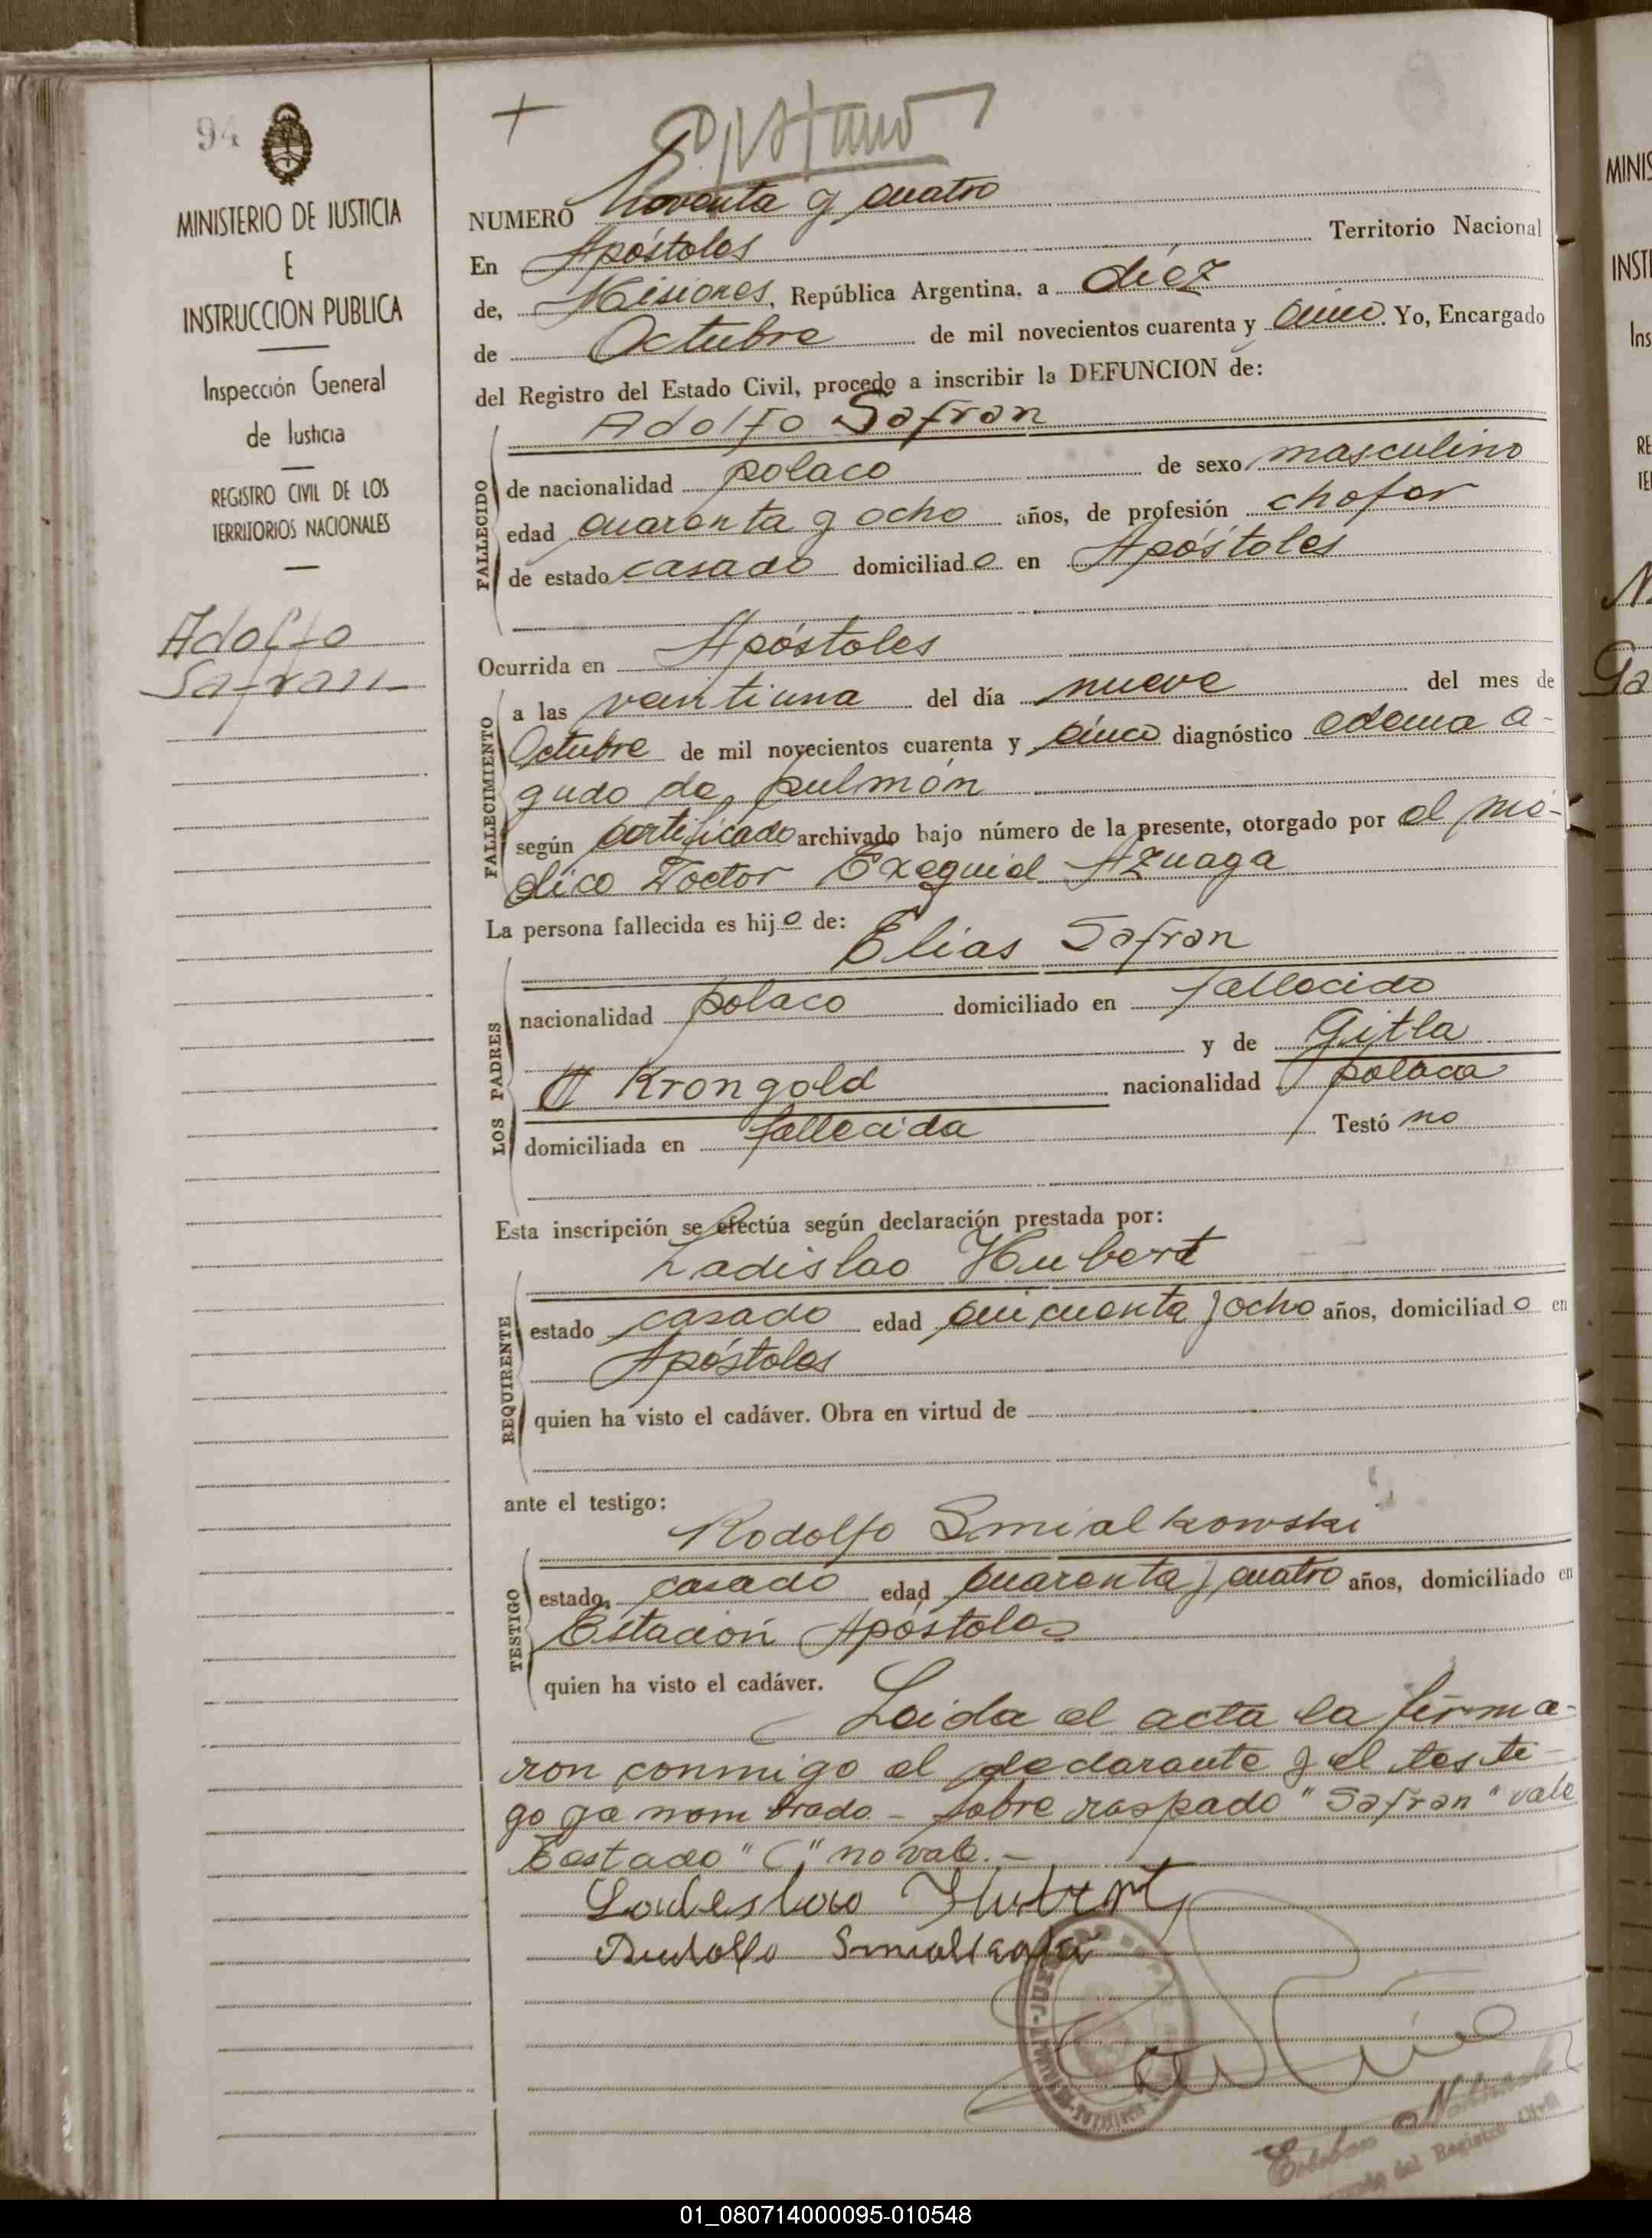 94
MINISTERIO DE JUSTICIA
E
INSTRUCCION PUBLICA
Inspección General
de Justicia
REGISTRO CIVIL DE LOS
TERRITORIOS NACIONALES
Adolfo
Safran
NUMERO Noventa y cuatro
En Apóstoles Territorio Nacional
de, Misiones, República Argentina, a diez
de Octubre de mil novecientos cuarenta y cinco. Yo, Encargado
del Registro del Estado Civil, procedo a inscribir la DEFUNCION de:
Adolfo Safran
FALLECIDO
de nacionalidad polaco de sexo masculino
edad cuarenta y ocho años, de profesión chofer
de estado casado domiciliado en Apóstoles
Ocurrida en Apóstoles
FALLECIMIENTO
a las veintiuna del día nueve del mes de
Octubre de mil novecientos cuarenta y cinco diagnóstico edema a-
gudo de pulmón
según certificado archivado bajo número de la presente, otorgado por el mé-
dico Doctor Exequiel Azuaga
La persona fallecida es hijo de:
Elias Safran
LOS PADRES
nacionalidad polaco domiciliado en fallecido
y de Gitla
Krongold nacionalidad polaca
domiciliada en fallecida Testó no
Esta inscripción se efectúa según declaración prestada por:
Ladislao Hubert
REQUIRENTE
estado casado edad cincuenta y ocho años, domiciliado en
Apóstoles
quien ha visto el cadáver. Obra en virtud de
ante el testigo:
Rodolfo Smialkowski
TESTIGO
estado, casado edad cuarenta y cuatro años, domiciliado en
Estación Apóstoles
quien ha visto el cadáver.
Leida el acta la firma-
ron conmigo el declarante y el testi-
go ya nombrado - Sobre raspado "Safran" vale
Testado "C" no vale. -
Ladislao Hubert
Rudolfo
Esteban
del Registro Civil
MINIS
INSTI
Ins
RE
TEI
01_080714000095-010548